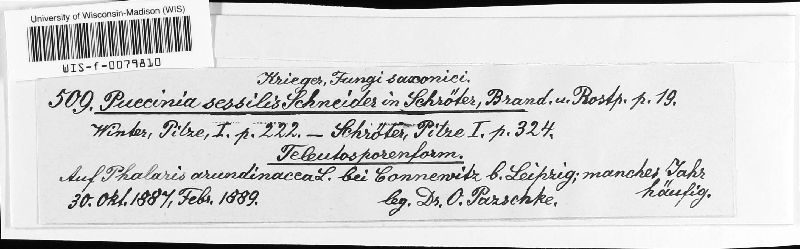 University of Wisconsin-Madison (WIS)
WIS-f-0079810
Krieger, Fungi saxonici.
509. Puccinia sessilis Schneider in Schröter, Brand. u. Rostp. p. 19.
Winter, Pilze, I. p. 222. — Schröter, Pilze I. p. 324.
Teleutosporenform.
Auf Phalaris arundinacea L. bei Connewitz b. Leipzig; manches Jahr
häufig.
30. Okt. 1887, Febr. 1889. leg. Dr. O. Pazschke.